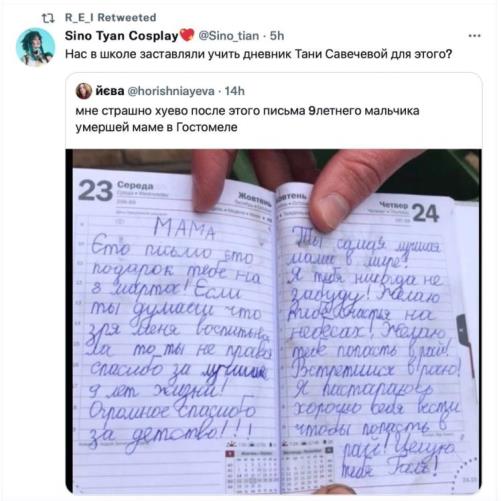 R_E_I Retweeted
Sino Tyan Cosplay @Sino_tian · 5h
Нас в школе заставляли учить дневник Тани Савечевой для этого?
йєва @horishniayeva · 14h
мне страшно хуево после этого письма 9летнего мальчика
умершей маме в Гостомеле
23 Середа
Жовтень
МАМА
Єто письмо єто
подарок тебе на
8 марта! Если
ты думаеш что
зря меня воспитыва
ла то ты не права
спасибо за лучшие
9 лет жизни!
Огромное спасибо
за детство!!!
Жовтень
Четвер 24
Ты самая лучшая
мама в мире!
Я тебя никогда не
забуду! Желаю
на
небесах! Желаю
тебе попасть в рай!
Встретимся в раю!
Я постараюсь
хорошо себя вести
чтобы попасть в
рай! Целую
тебя Галя!